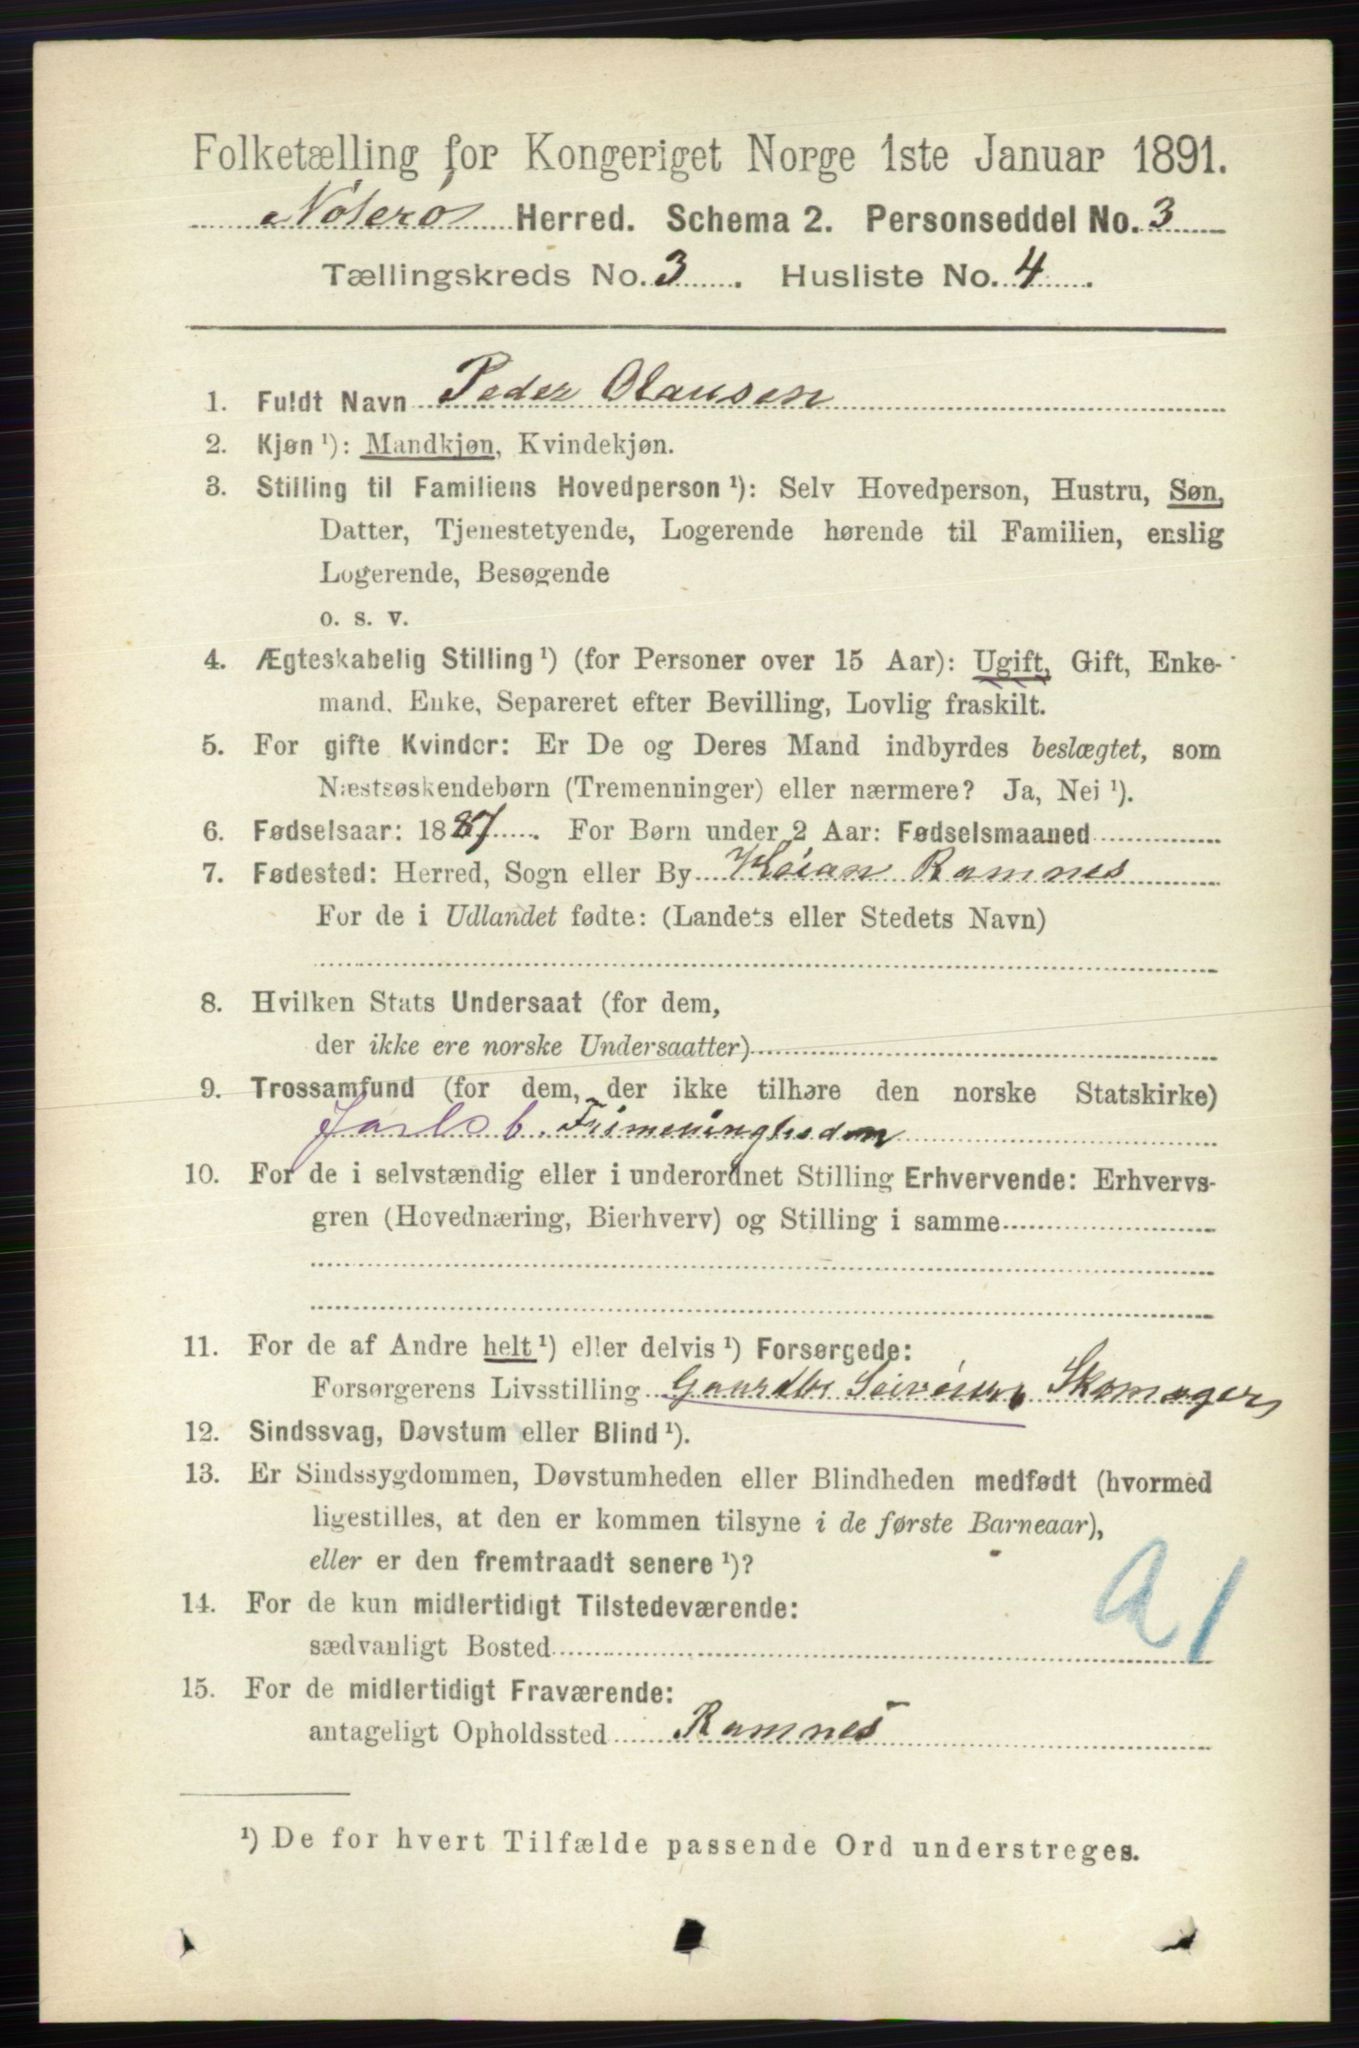 Folketælling for Kongeriget Norge 1ste Januar 1891.
Nøterø Herred. Schema 2. Personseddel No. 3
Tællingskreds No. 3. Husliste No. 4.
1. Fuldt Navn Peder Olausen
2. Kjøn ¹): Mandkjøn, Kvindekjøn.
3. Stilling til Familiens Hovedperson ¹): Selv Hovedperson, Hustru, Søn,
Datter, Tjenestetyende, Logerende hørende til Familien, enslig
Logerende, Besøgende
o. s. v.
4. Ægteskabelig Stilling ¹) (for Personer over 15 Aar): Ugift, Gift, Enke-
mand, Enke, Separeret efter Bevilling, Lovlig fraskilt.
5. For gifte Kvinder: Er De og Deres Mand indbyrdes beslægtet, som
Næstsøskendebørn (Tremenninger) eller nærmere? Ja, Nei ¹).
6. Fødselsaar: 1887. For Børn under 2 Aar: Fødselsmaaned
7. Fødested: Herred, Sogn eller By Høian Ramnes
For de i Udlandet fødte: (Landets eller Stedets Navn)
8. Hvilken Stats Undersaat (for dem,
der ikke ere norske Undersaatter)
9. Trossamfund (for dem, der ikke tilhøre den norske Statskirke)
Jarlsb. Frimenigheden
10. For de i selvstændig eller i underordnet Stilling Erhvervende: Erhvervs-
gren (Hovednæring, Bierhverv) og Stilling i samme
11. For de af Andre helt ¹) eller delvis ¹) Forsørgede:
Forsørgerens Livsstilling Gaardbr Skomager
12. Sindssvag, Døvstum eller Blind ¹).
13. Er Sindssygdommen, Døvstumheden eller Blindheden medfødt (hvormed
ligestilles, at den er kommen tilsyne i de første Barneaar),
eller er den fremtraadt senere ¹)?
14. For de kun midlertidigt Tilstedeværende:
sædvanligt Bosted
A 1
15. For de midlertidigt Fraværende:
antageligt Opholdssted Ramnes
¹) De for hvert Tilfælde passende Ord understreges.